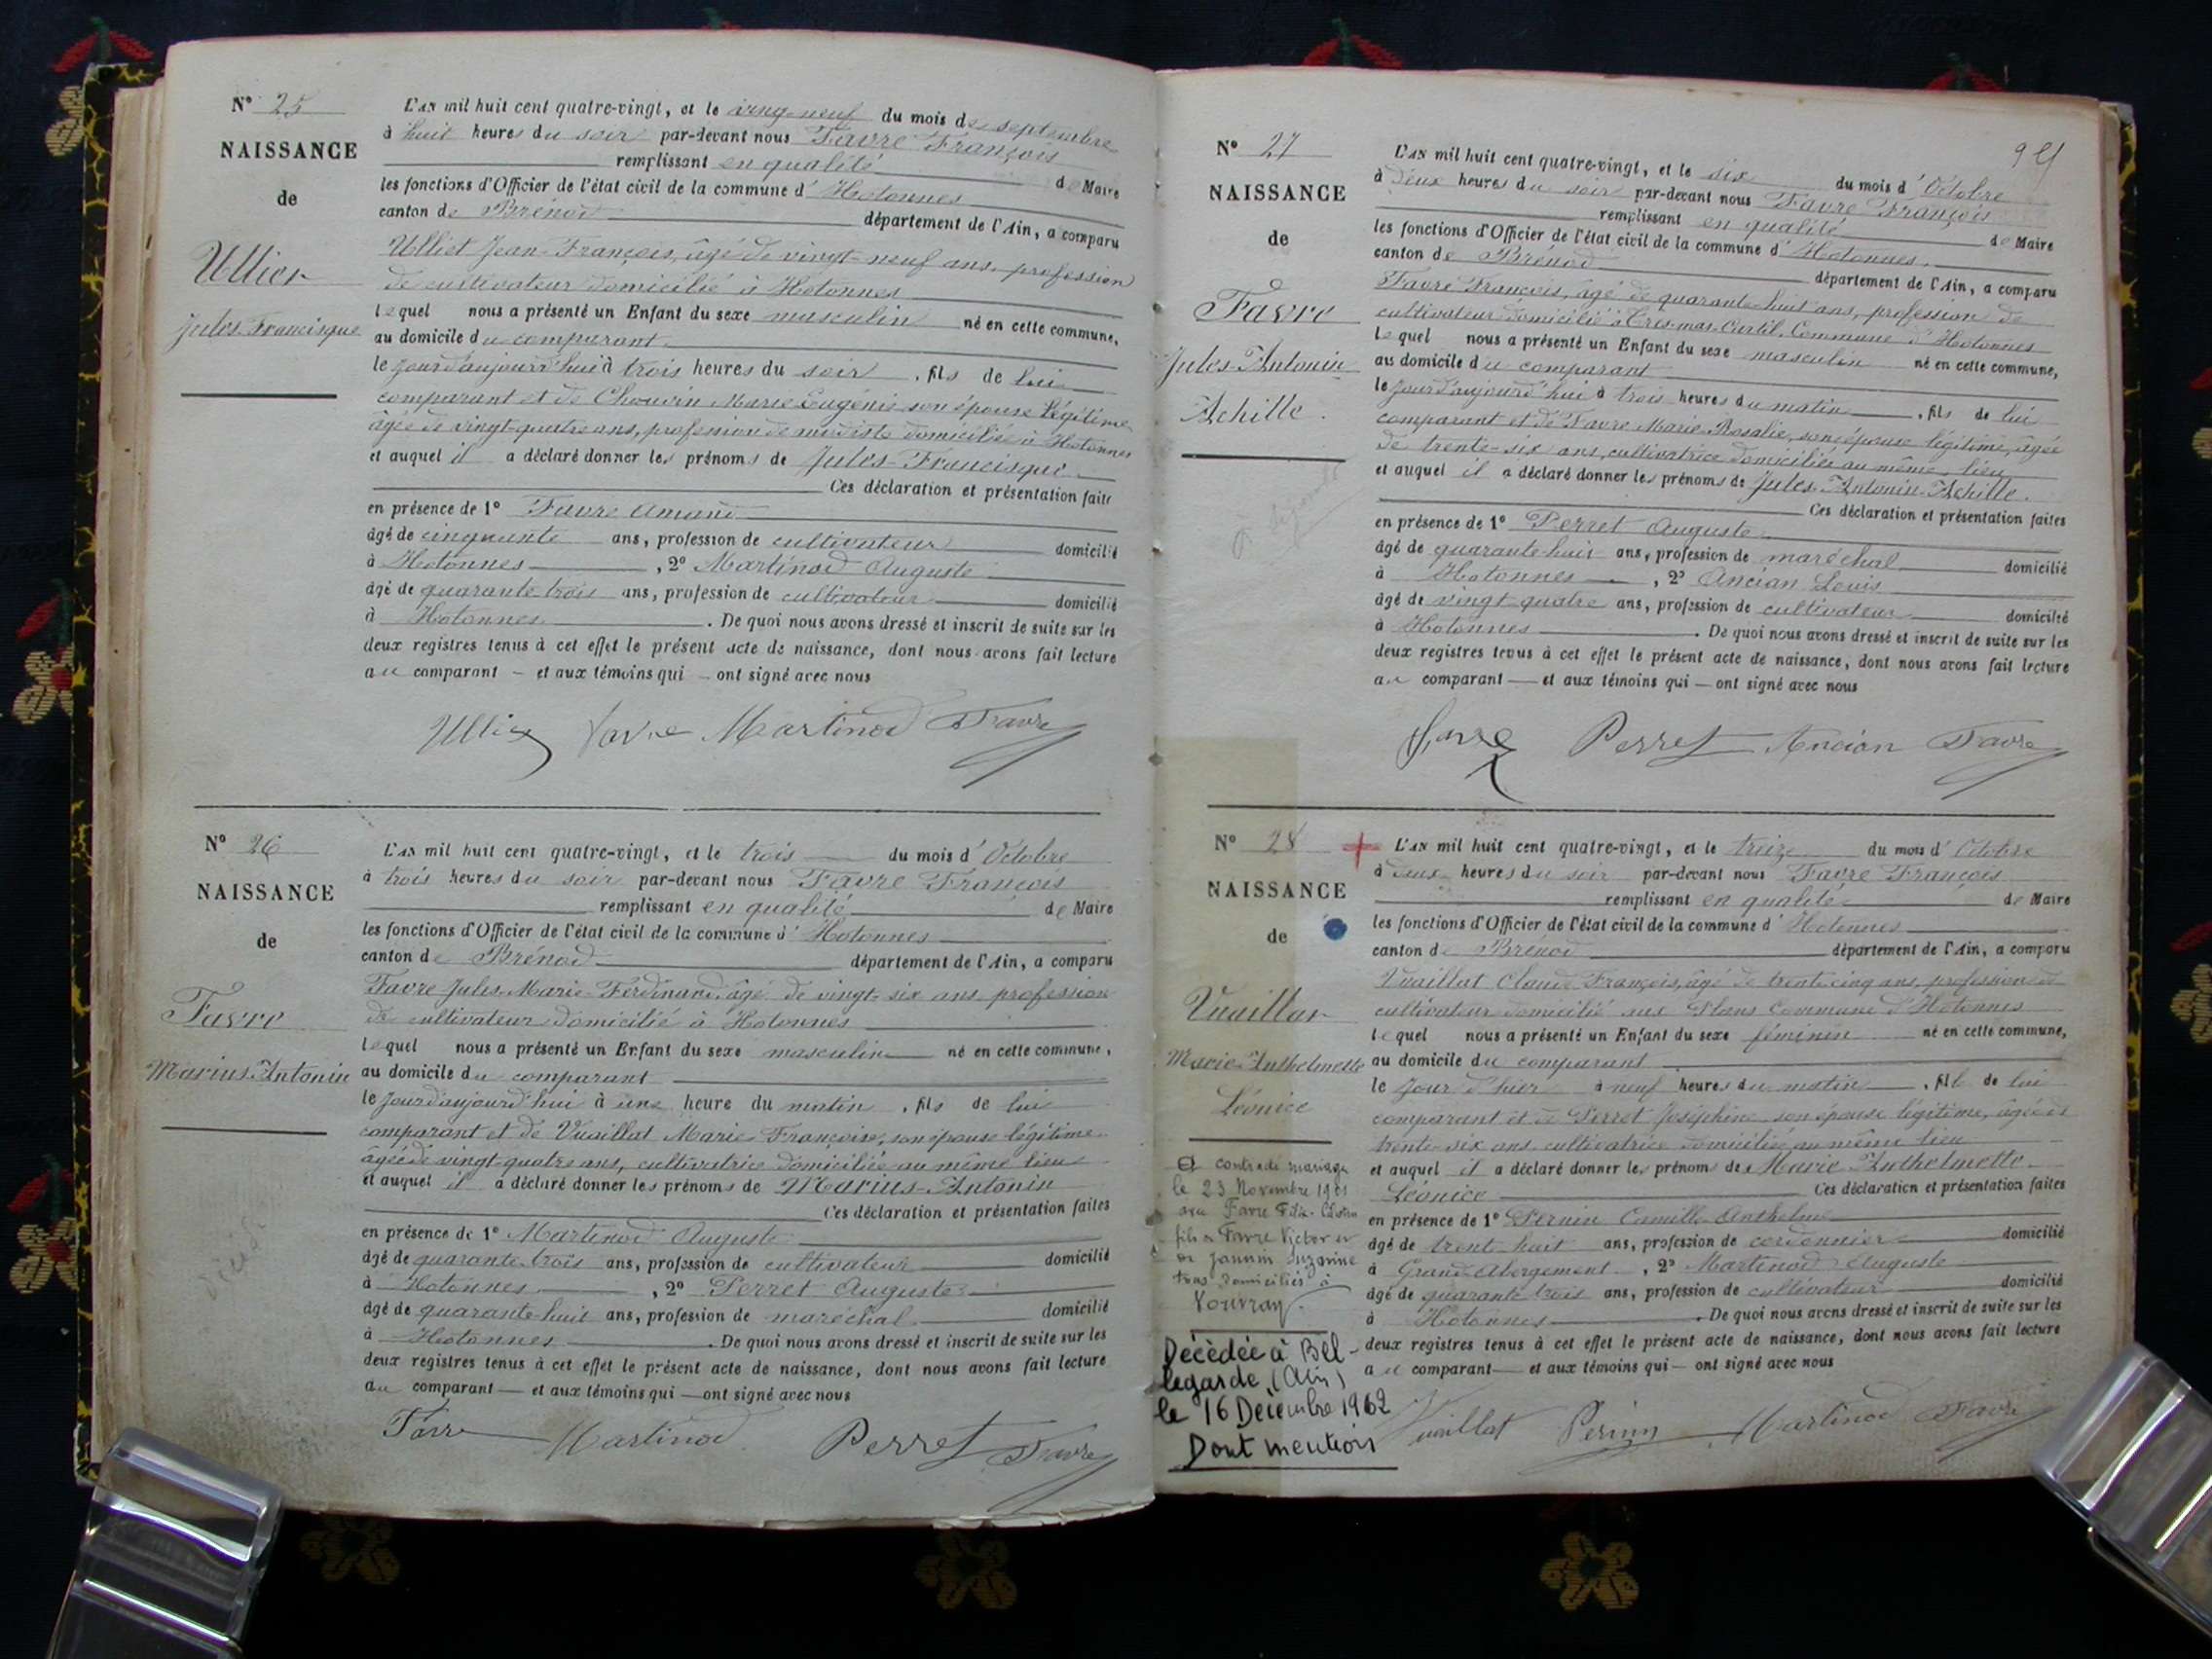 N° 25
NAISSANCE
de
Ullier
Jules Francisque
L'AN mil huit cent quatre-vingt, et le vingt-neuf du mois de septembre
à huit heures du soir par-devant nous Favre François
remplissant en qualité de Maire
les fonctions d'Officier de l'état civil de la commune d'Hotonnes
canton de Brénod département de l'Ain, a comparu
Ulliet Jean-François, âgé de vingt-neuf ans, profession
de cultivateur domicilié à Hotonnes
lequel nous a présenté un Enfant du sexe masculin né en cette commune,
au domicile du comparant
le jour d'aujourd'hui à trois heures du soir, fils de lui
comparant et de Chouvin Marie Eugénie son épouse légitime
âgée de vingt-quatre ans, profession de modiste domiciliée à Hotonnes
et auquel il a déclaré donner les prénoms de Jules-Francisque
Ces déclaration et présentation faites
en présence de 1° Favre Amand
âgé de cinquante ans, profession de cultivateur domicilié
à Hotonnes, 2° Martinod Auguste
âgé de quarante trois ans, profession de cultivateur domicilié
à Hotonnes. De quoi nous avons dressé et inscrit de suite sur les
deux registres tenus à cet effet le présent acte de naissance, dont nous avons fait lecture
au comparant - et aux témoins qui - ont signé avec nous
Ullier Favre Martinod Favre
N° 26
NAISSANCE
de
Favre
Marius-Antonin
L'AN mil huit cent quatre-vingt, et le trois du mois d'Octobre
à trois heures du soir par-devant nous Favre François
remplissant en qualité de Maire
les fonctions d'Officier de l'état civil de la commune d'Hotonnes
canton de Brénod département de l'Ain, a comparu
Favre Jules-Marie-Ferdinand, âgé de vingt-six ans profession
de cultivateur domicilié à Hotonnes
lequel nous a présenté un Enfant du sexe masculin né en cette commune,
au domicile du comparant
le jour d'aujourd'hui à une heure du matin, fils de lui
comparant et de Vuaillat Marie-Françoise, son épouse légitime
âgée de vingt-quatre ans, cultivatrice domiciliée au même lieu
et auquel il a déclaré donner les prénoms de Marius-Antonin
Ces déclaration et présentation faites
en présence de 1° Martinod Auguste
âgé de quarante-trois ans, profession de cultivateur domicilié
à Hotonnes, 2° Perret Auguste
âgé de quarante-huit ans, profession de maréchal domicilié
à Hotonnes. De quoi nous avons dressé et inscrit de suite sur les
deux registres tenus à cet effet le présent acte de naissance, dont nous avons fait lecture
au comparant — et aux témoins qui — ont signé avec nous
Favre Martinod Perret Favre
N° 27
NAISSANCE
de
Favre
Jules-Antonin
Achille.
L'AN mil huit cent quatre-vingt, et le six du mois d'Octobre
à deux heures du soir par-devant nous Favre François
remplissant en qualité de Maire
les fonctions d'Officier de l'état civil de la commune d'Hotonnes
canton de Brénod département de l'Ain, a comparu
Favre François, âgé de quarante-huit ans, profession de
cultivateur domicilié à Commune d'Hotonnes
lequel nous a présenté un Enfant du sexe masculin né en cette commune,
au domicile du comparant
le jour d'aujourd'hui à trois heures du matin, fils de lui
comparant et de Favre Marie-Rosalie, son épouse légitime, âgée
de trente-six ans, cultivatrice domiciliée au même lieu
et auquel il a déclaré donner les prénoms de Jules-Antonin-Achille.
Ces déclaration et présentation faites
en présence de 1° Perret Auguste
âgé de quarante huit ans, profession de maréchal domicilié
à Hotonnes, 2° Ancian Louis
âgé de vingt quatre ans, profession de cultivateur domicilié
à Hotonnes. De quoi nous avons dressé et inscrit de suite sur les
deux registres tenus à cet effet le présent acte de naissance, dont nous avons fait lecture
au comparant — et aux témoins qui — ont signé avec nous
Favre Perret Ancian Favre
N° 28
NAISSANCE
de
Vuaillat
Marie-Anthelmette
Léonice
A contracté mariage
le 23 Novembre 1901
avec Favre Félix-
fils de Favre Victor et
de Jannin Suzanne
tous domiciliés à
Vouvray.
Décédée à Bel-
legarde, (Ain)
le 16 Décembre 1962
Dont mention
L'AN mil huit cent quatre-vingt, et le treize du mois d'Octobre
à deux heures du soir par-devant nous Favre François
remplissant en qualité de Maire
les fonctions d'Officier de l'état civil de la commune d'Hotonnes
canton de Brénod département de l'Ain, a comparu
Vuaillat Claude François, âgé de trente cinq ans, profession de
cultivateur domicilié aux Plans Commune d'Hotonnes
lequel nous a présenté un Enfant du sexe féminin né en cette commune,
au domicile du comparant
le jour d'hier à neuf heures du matin, fille de lui
comparant et de Perret Joséphine son épouse légitime, âgée de
trente-six ans cultivatrice domiciliée au même lieu
et auquel il a déclaré donner les prénoms de Marie-Anthelmette-
Léonice Ces déclaration et présentation faites
en présence de 1° Pernin Camille Anthelme
âgé de trent-huit ans, profession de cordonnier domicilié
à Grand-Abergement, 2° Martinod Auguste
âgé de quarante trois ans, profession de cultivateur domicilié
à Hotonnes. De quoi nous avons dressé et inscrit de suite sur les
deux registres tenus à cet effet le présent acte de naissance, dont nous avons fait lecture
au comparant — et aux témoins qui — ont signé avec nous
Vuaillat Pernin Martinod Favre